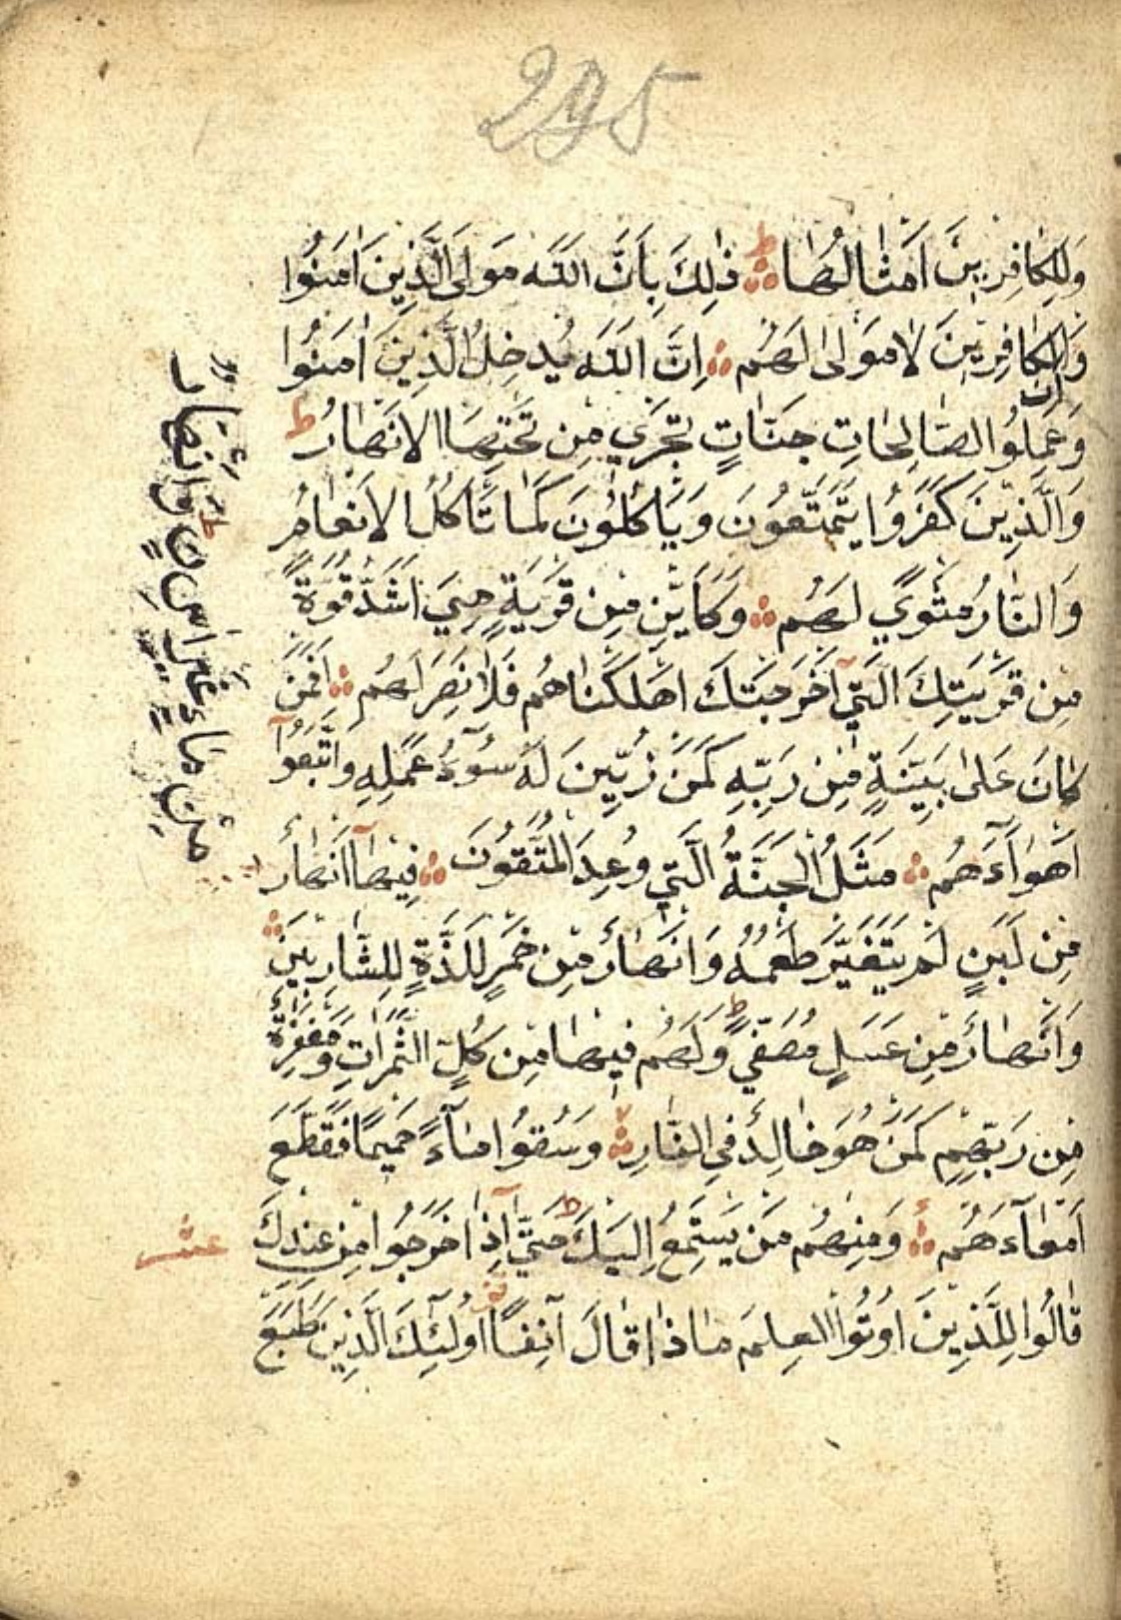 295
وَلِلكَافِرِينَ اَمْثَالُهَا ط ذٰلِكَ بِاَنَّ اللّٰهَ مَولَى الَّذِينَ اٰمَنُوا
وَاَنَّ الكَافِرِينَ لَا مَولٰى لَهُم اِنَّ اللّٰهَ يُدخِلُ الَّذِينَ اٰمَنُوا
وَعَمِلُوا الصَّالِحَاتِ جَنَّاتٍ تَجْرِي مِن تَحْتِهَا الاَنْهَارُ ط
وَالَّذِينَ كَفَرُوا يَتَمَتَّعُونَ وَيَاكُلُونَ كَمَا تَاكُلُ الاَنعَامُ
وَالنَّارُ مَثْوًي لَهُم وَكَاَيِّن مِن قَرْيَةٍ هِيَ اَشَدُّ قُوَّةً
مِن قَرْيَتِكَ الَّتِي اَخْرَجَتكَ اَهلَكنَاهُم فَلَا نَاصِرَ لَهُم اَفَمَن
كَانَ عَلٰى بَيِّنَةٍ مِن رَبِّهِ كَمَن زُيِّنَ لَهُ سُوٓءُ عَمَلِهِ وَاتَّبَعُوٓا
اَهوَآءَهُم مَثَلُ الجَنَّةِ الَّتِي وُعِدَ المُتَّقُونَ فِيهَآ اَنْهَارٌ
مِن لَبَنٍ لَم يَتَغَيَّر طَعمُهُ وَاَنْهَارٌ مِن خَمرٍ لَذَّةٍ لِلشَّارِبِينَ
وَاَنْهَارٌ مِن عَسَلٍ مُصَفًّي ط وَلَهُم فِيهَا مِن كُلِّ الثَّمَرَاتِ وَمَغفِرَةٌ
مِن رَبِّهِم كَمَن هُوَ خَالِدٌ فِي النَّارِ وَسُقُوا مَآءً حَمِيمًا فَقَطَّعَ
اَمعَآءَهُم وَمِنهُم مَن يَستَمِعُ اِلَيكَ حَتَّيٓ اِذَا خَرَجُوا مِن عِندِكَ
قَالُوا لِلَّذِينَ اُوتُوا العِلمَ مَا ذَا قَالَ آنِفًا اُولٰٓئِكَ الَّذِينَ طَبَعَ
مِن مَاءٍ غَيرِ اٰسِنٍ وَاَنْهَارٌ
عشر